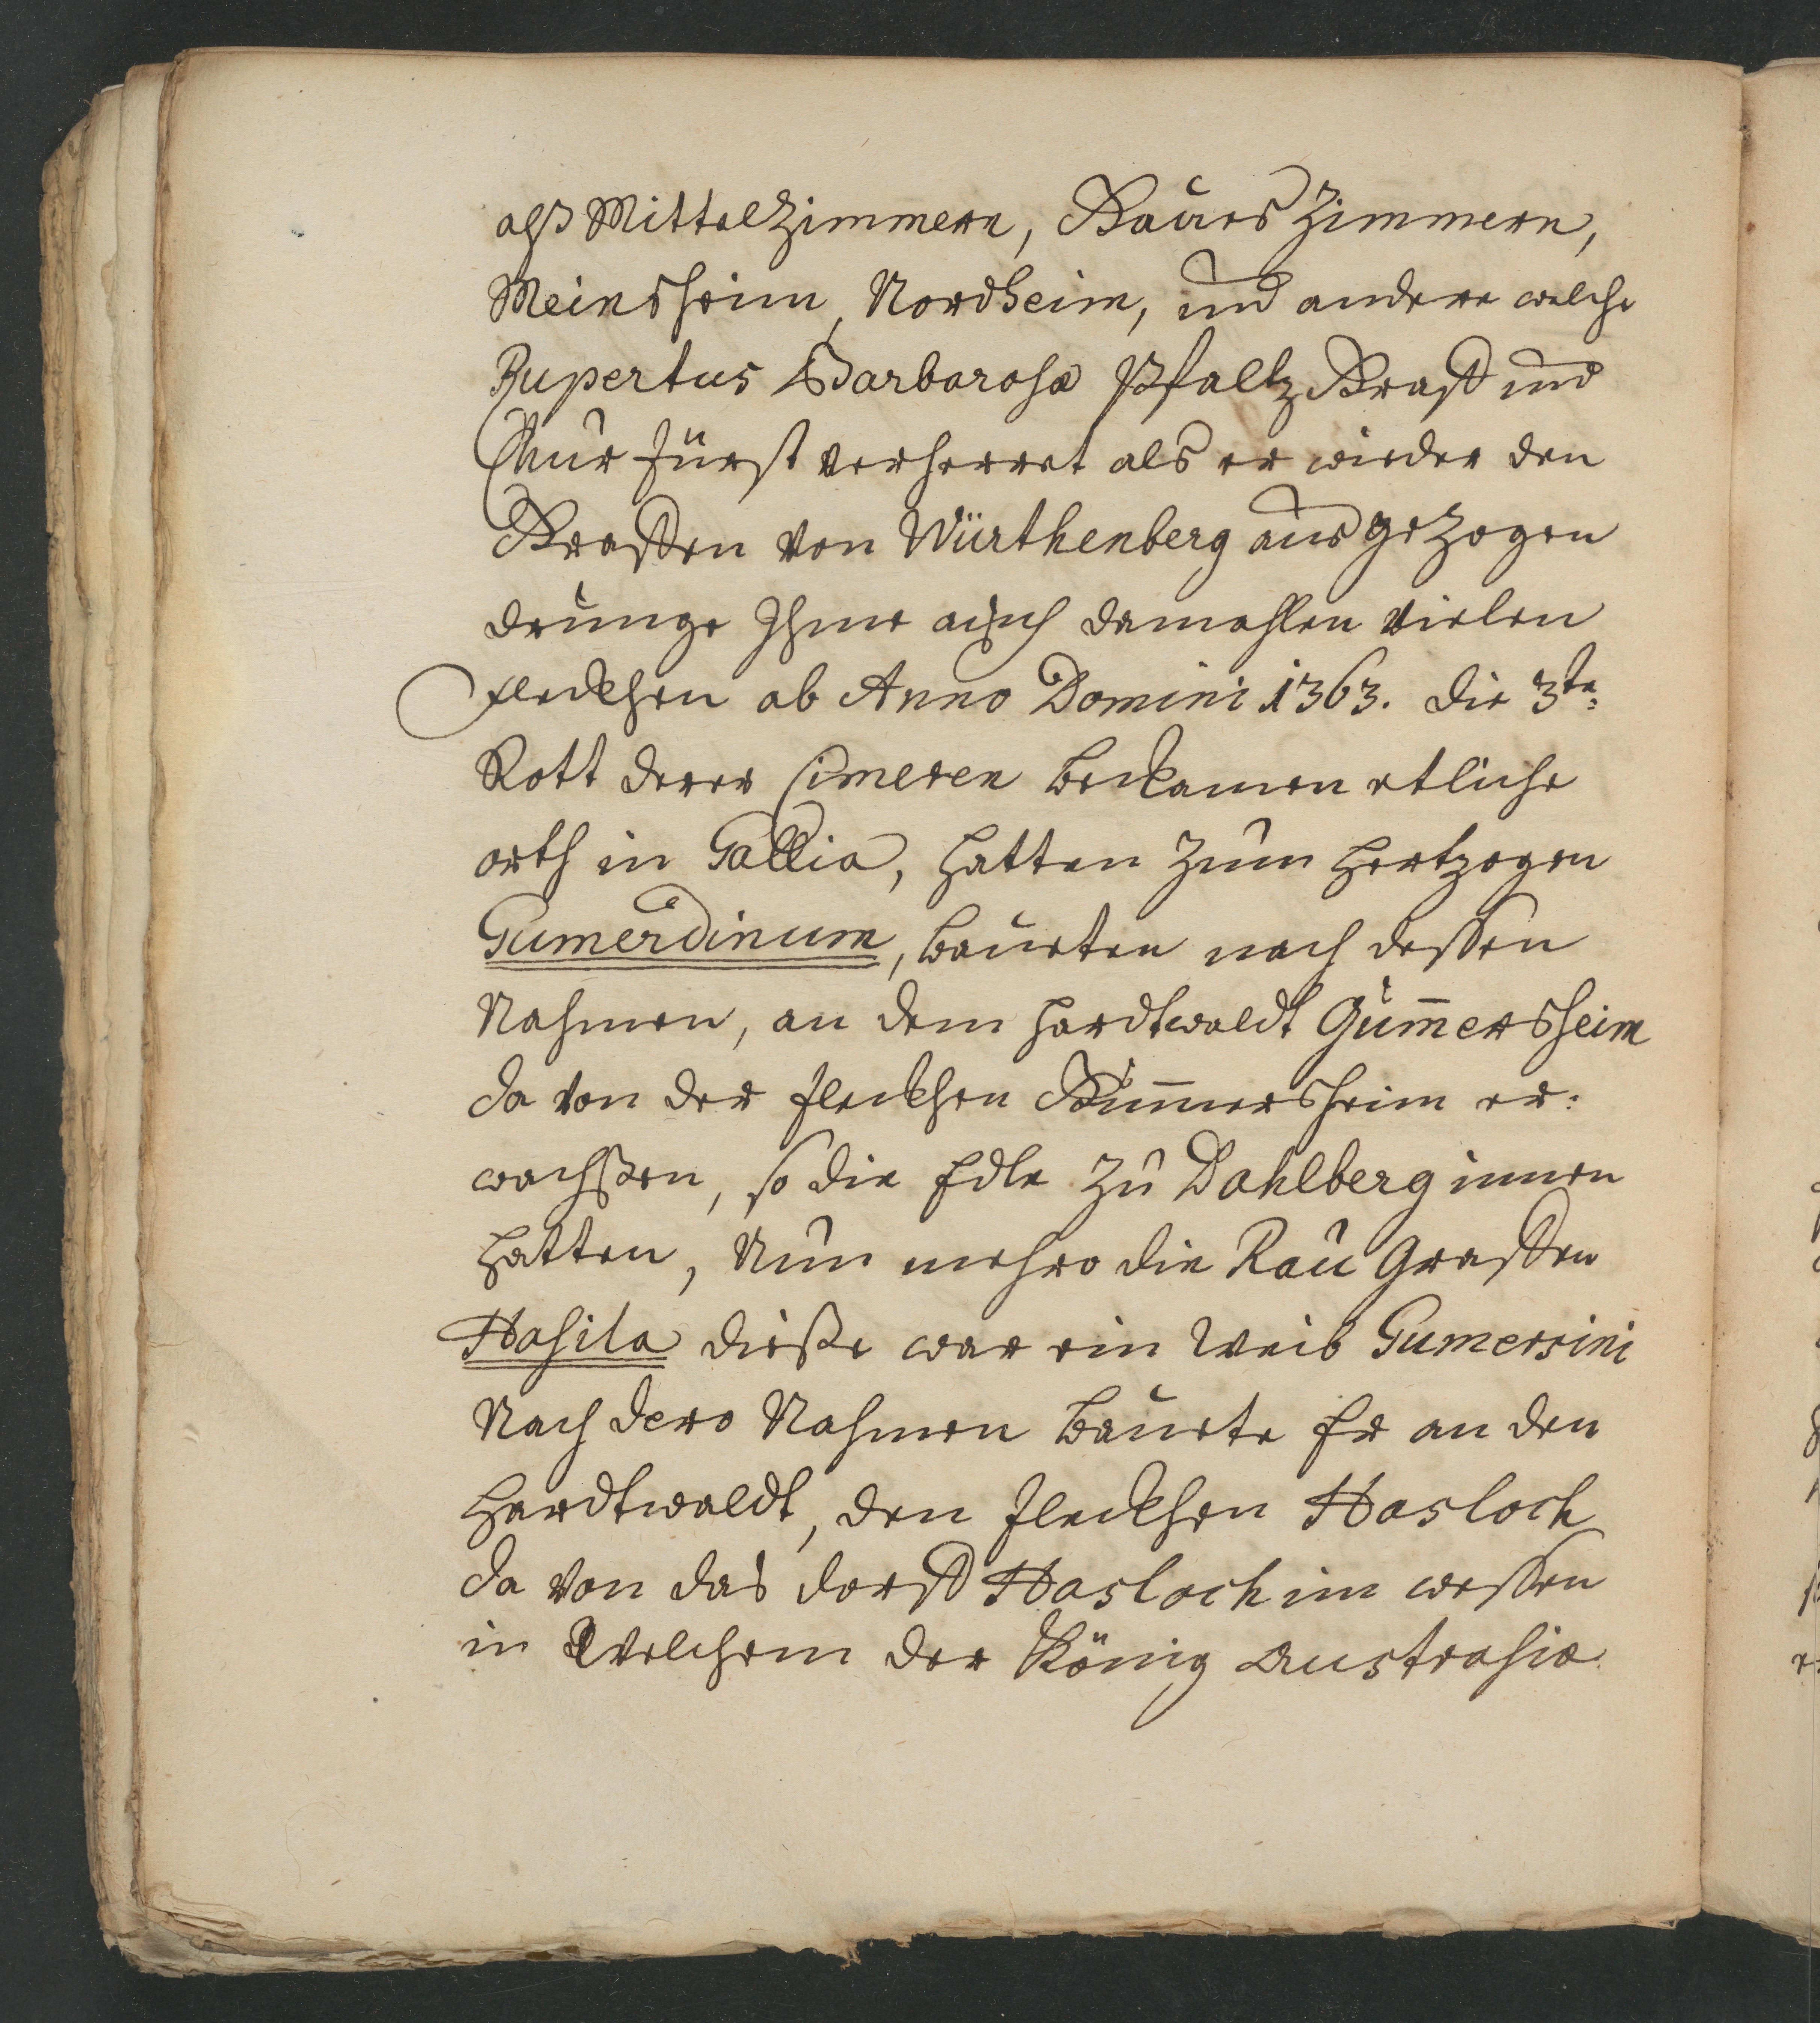 alß Mittelzimmern, Baurs Zimmern,
Meinsheim, Nordheim, und andere welche
Rupertus Barbarossa Pfaltz Graff und
Chur Fürst verherret als er wieder den
Graffen von Würthenberg ausgezogen
drunge Ihme auch damahlen vielen
Fleckhen ab Anno Domini 1363. die 3te
Rott derer Cimeren beckamen etliche
orth in Gallia, hatten zum Hertzogen
Gumerdinum, baurten nach dessen
Nahmen, an dem Hardtwaldt Gum̄ersheim
da von der Fleckhen Gum̄ersheim er:
wachßen, so die Edle zu Dahlberg innen
hatten, Nun mehro die Rau Graffen
Hasila dieße war ein Weib Gumersini
Nach dero Nahmen baurte Er an den
Hardtwaldt, den Fleckhen Hasloch
da von das dorff Hasloch im weßen
in Welchem der König Austrasiæ